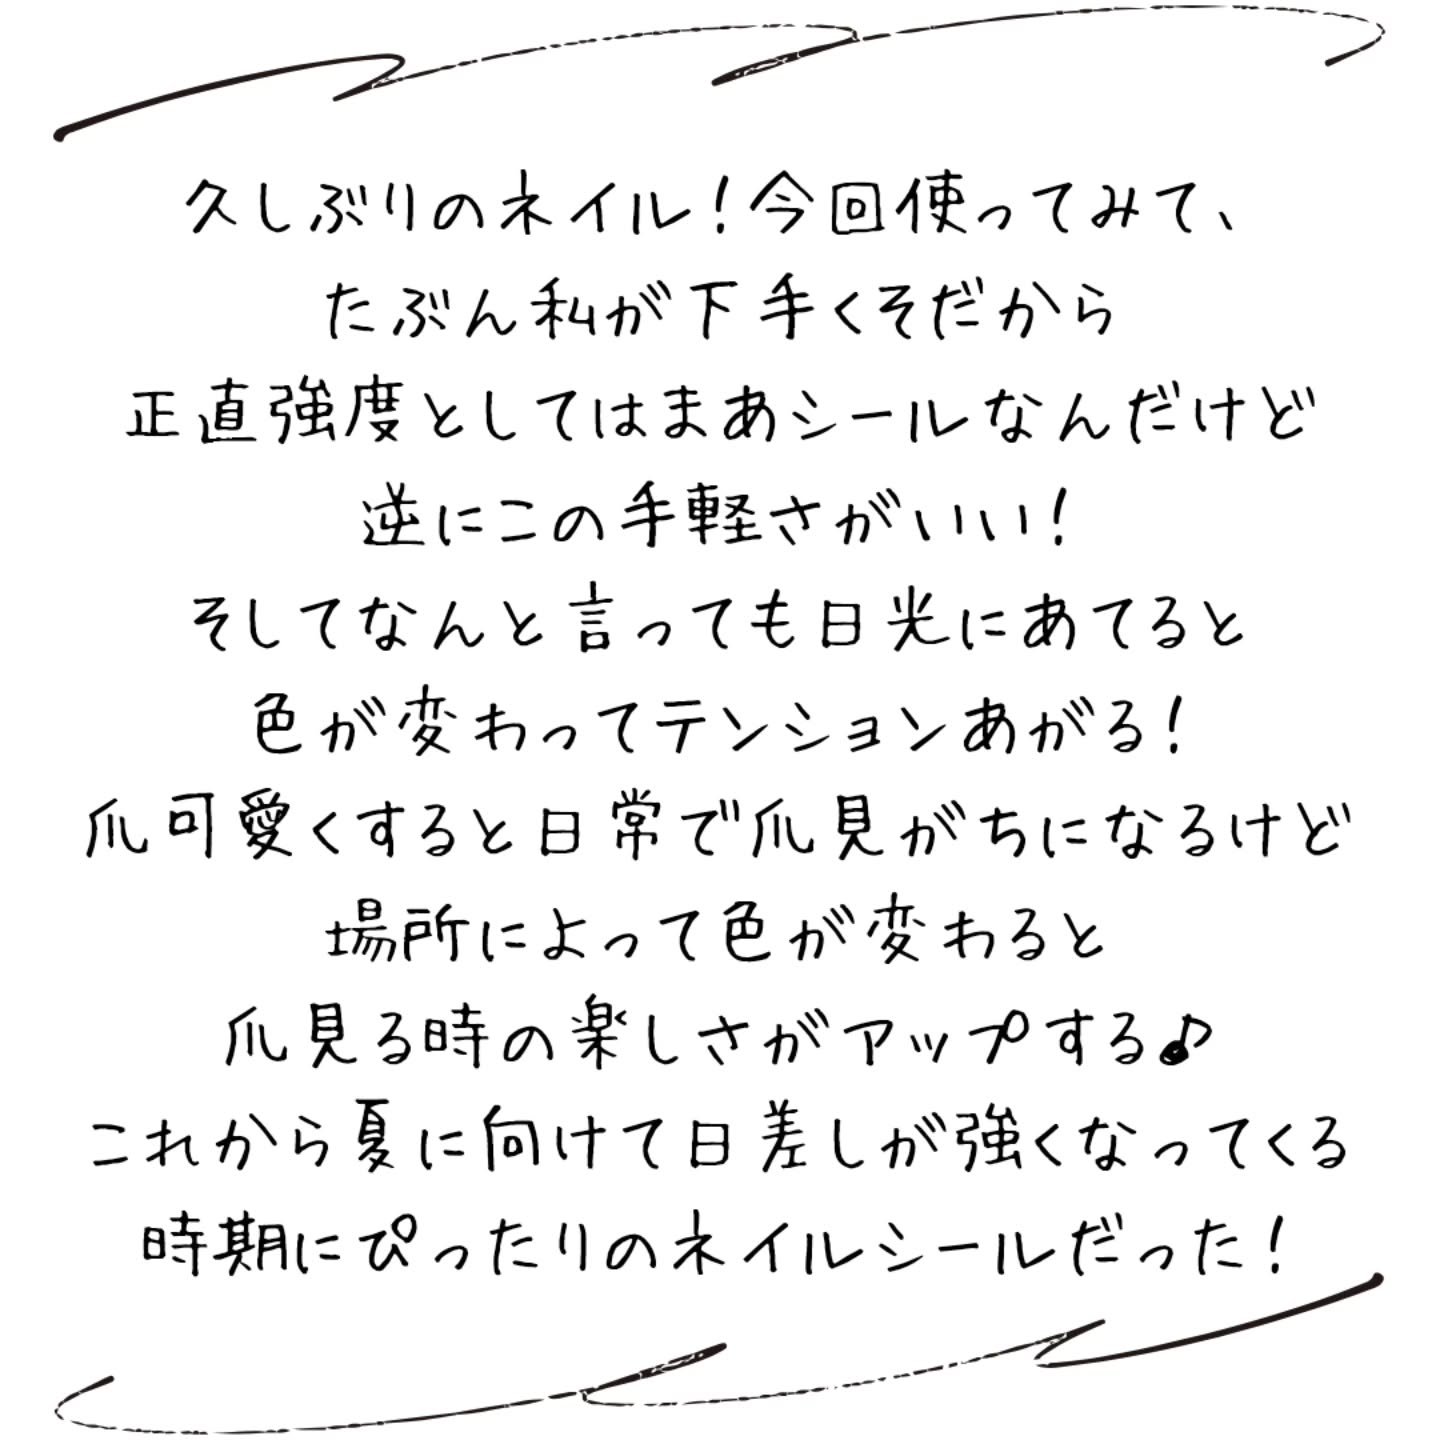 久しぶりのネイル！今回使ってみて、
たぶん私が下手くそだから
正直強度としてはまあシールなんだけど
逆にこの手軽さがいい！
そしてなんと言っても日光にあてると
色が変わってテンションあがる！
爪可愛くすると日常で爪見がちになるけど
場所によって色が変わると
爪見る時の楽しさがアップする♪
これから夏に向けて日差しが強くなってくる
時期にぴったりのネイルシールだった！